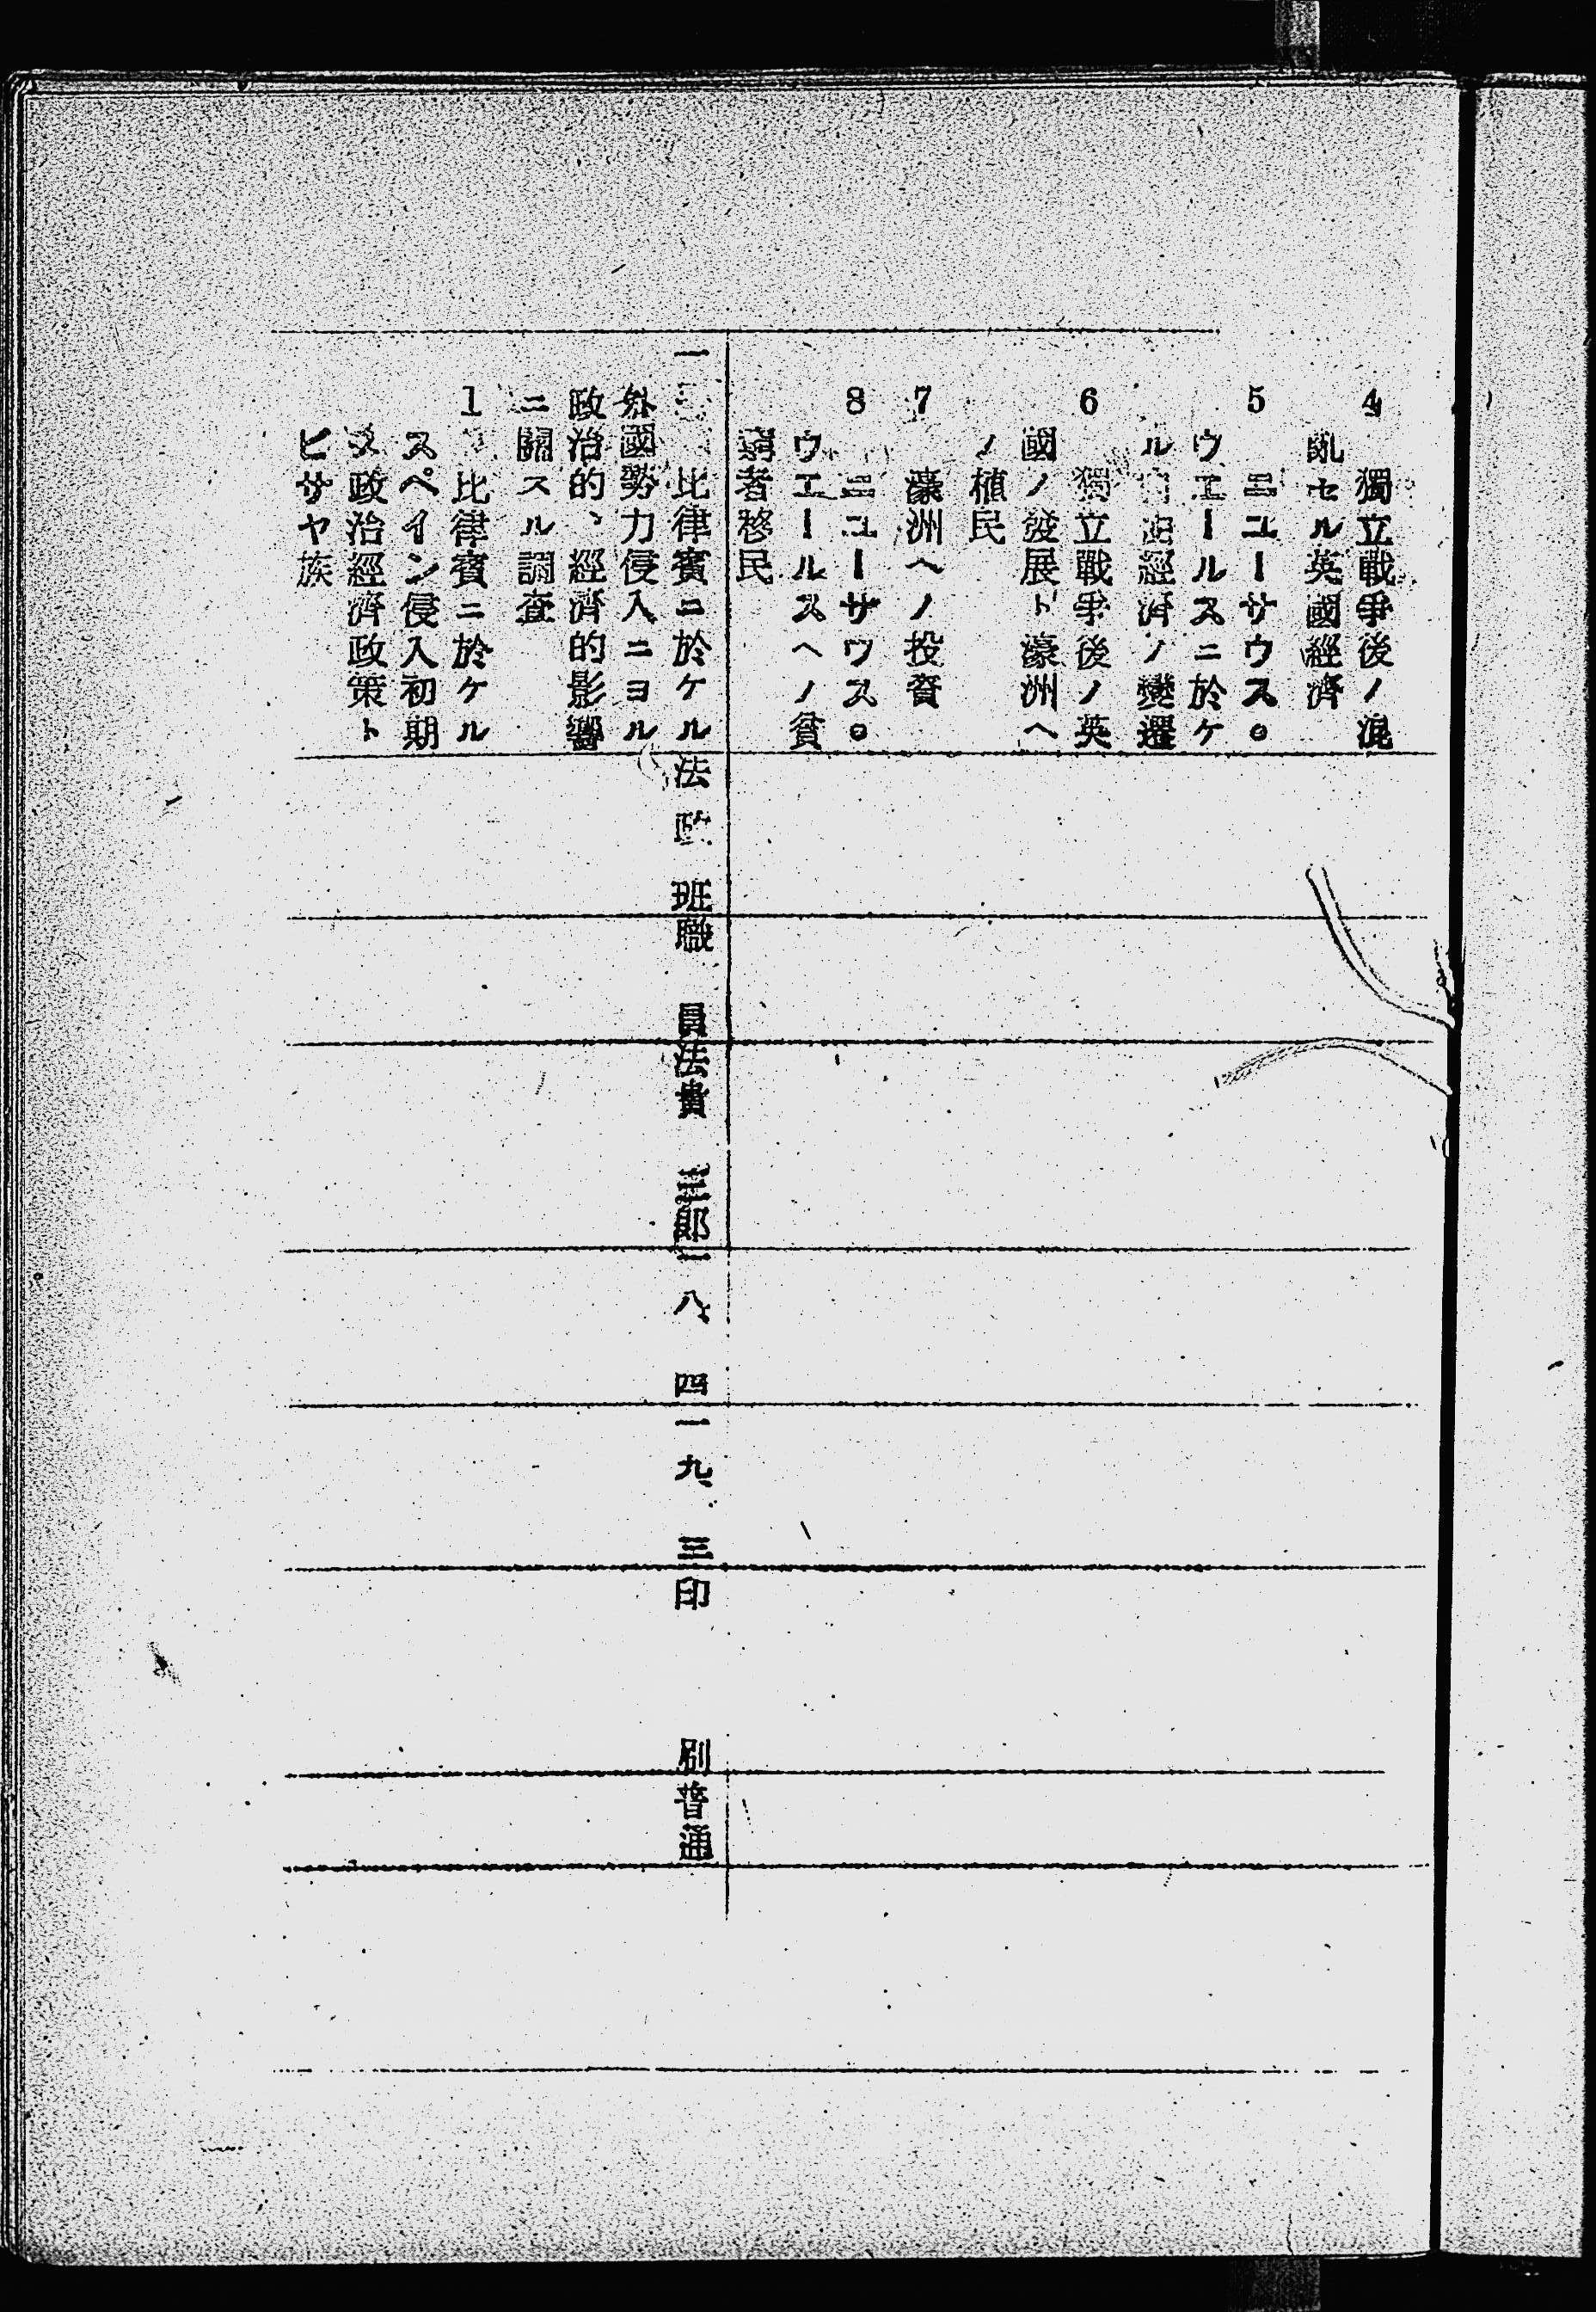 4 獨立戰爭後ノ混
亂セル英國經濟
5 ニユーサウス。
ウエールスニ於ケ
ル 經濟ノ變遷
6 獨立戰爭後ノ英
國ノ發展ト濠洲ヘ
ノ植民
7 濠洲ヘノ投資
8 ニユーサウス。
ウエールスヘノ貧
窮者移民
一 比律賓ニ於ケル 法政班 職員 法貴三郎 一八、四 一九、三 印刷 普通
外國勢力侵入ニヨル
政治的、經濟的影響
ニ關スル調査
1 比律賓ニ於ケル
スペイン侵入初期
ノ政治經濟政策ト
ビサヤ族